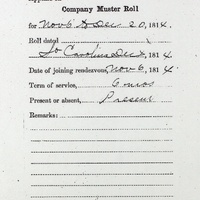 Company Muster Roll
for Nov 6 to Dec 20, 1814.
Roll dated
So Carolina Dec 1814
Date of joining rendezvous, Nov 6, 1814.
Term of service, 6 mos
Present or absent, Present
Remarks: